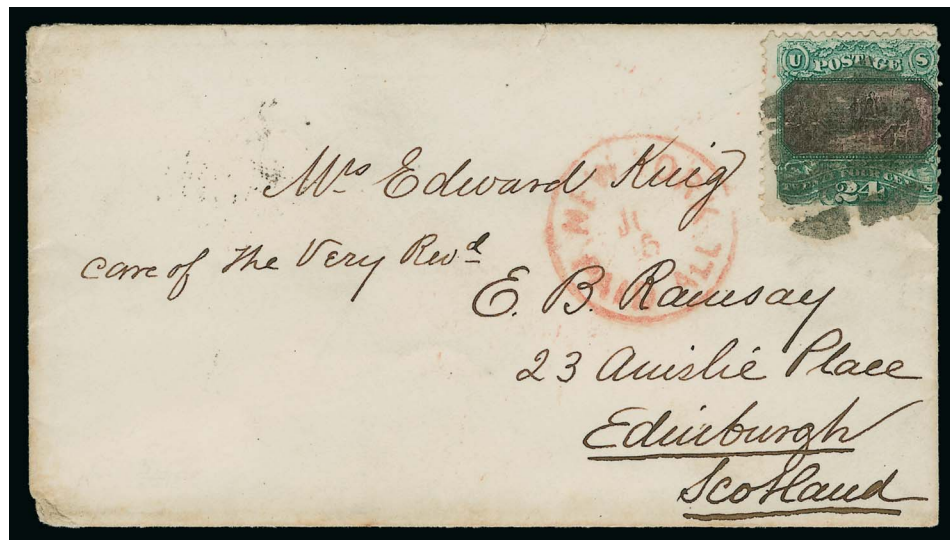 U POSTAGE S
TWENTY FOUR CENTS
24
NEW YORK
PAID ALL
Mrs Edward King
care of The Very Revd
E. B. Ramsay
23 Ainslie Place
Edinburgh
Scotland